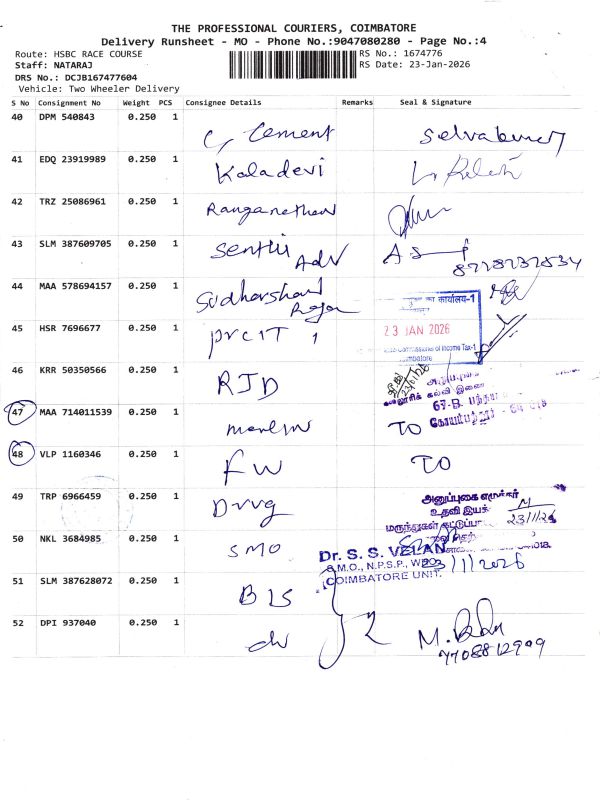 THE PROFESSIONAL COURIERS, COIMBATORE
Delivery Runsheet - MO - Phone No.:9047080280 - Page No.:4
Route: HSBC RACE COURSE RS No.: 1674776
Staff: NATARAJ RS Date: 23-Jan-2026
DRS No.: DCJB167477604
Vehicle: Two Wheeler Delivery
S No Consignment No Weight PCS Consignee Details Remarks Seal & Signature
40 DPM 540843 0.250 1 Cement Selvakumar
41 EDQ 23919989 0.250 1 Kaladevi
42 TRZ 25086961 0.250 1 Ranganathan
43 SLM 387609705 0.250 1 Senthil Adv
44 MAA 578694157 0.250 1 Sudharshan Raja
45 HSR 7696677 0.250 1 PrCIT 1
का कार्यालय-1
23 JAN 2026
of Income Tax-1
Coimbatore
46 KRR 50350566 0.250 1 RJD
கல்லூரிக் கல்வி
67-B,
47 MAA 714011539 0.250 1 TO
48 VLP 1160346 0.250 1 FW TO
49 TRP 6966459 0.250 1 Drug
அனுப்புகை எழுத்தர்
உதவி இயக்
மருந்துகள் கட்டுப்பா
23/1/26
50 NKL 3684985 0.250 1 SMO
Dr. S. S. VELAN
S.M.O., N.P.S.P., WHO
COIMBATORE UNIT.
23/1/2026
51 SLM 387628072 0.250 1 BIS
52 DPI 937040 0.250 1
7708812909